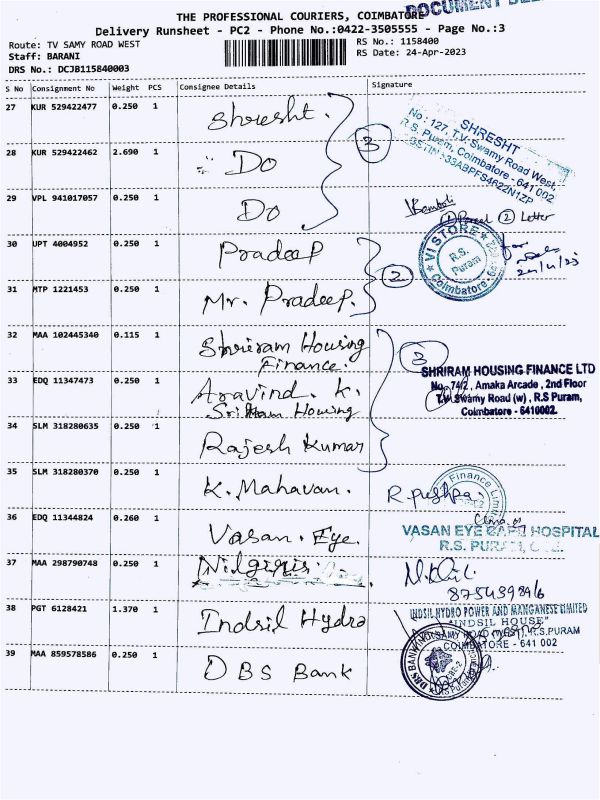 THE PROFESSIONAL COURIERS, COIMBATORE
DOCUMENT
Delivery Runsheet - PC2 - Phone No.:0422-3505555 - Page No.:3
Route: TV SAMY ROAD WEST
RS No.: 1158400
Staff: BARANI
RS Date: 24-Apr-2023
DRS No.: DCJB115840003
S No Consignment No Weight PCS Consignee Details Signature
27 KUR 529422477 0.250 1 Shresht.
3
SHRESHT
No: 127, T.V. Swamy Road West,
R.S. Puram, Coimbatore - 641 002
28 KUR 529422462 2.690 1 Do
29 VPL 941017057 0.250 1 Do
① Parcel ② Letter
30 UPT 4004952 0.250 1 Pradeep
VI STORE
R.S. Puram
Coimbatore
for
24/4/23
31 MTP 1221453 0.250 1 Mr. Pradeep.
2
32 MAA 102445340 0.115 1 Shriram Housing
Finance.
3
SHRIRAM HOUSING FINANCE LTD
No. 74/2, Amaka Arcade, 2nd Floor
T.V. Swamy Road (w), R.S Puram,
Coimbatore - 6410002.
33 EDQ 11347473 0.250 1 Aravind. K.
Sriram Housing
34 SLM 318280635 0.250 1 Rajesh Kumar
35 SLM 318280370 0.250 1 K. Mahavan.
R. pushpa.
Finance Limited
36 EDQ 11344824 0.260 1 Vasan. Eye.
VASAN EYE CARE HOSPITAL
R.S. PURAM,
37 MAA 298790748 0.250 1 Nilgiris.
38 PGT 6128421 1.370 1 Indsil Hydro
INDSIL HYDRO POWER AND MANGANESE LIMITED
"INDSIL HOUSE"
T.V. SAMY ROAD (WEST), R.S.PURAM
COIMBATORE - 641 002
39 MAA 859578586 0.250 1 DBS Bank
DBS BANK